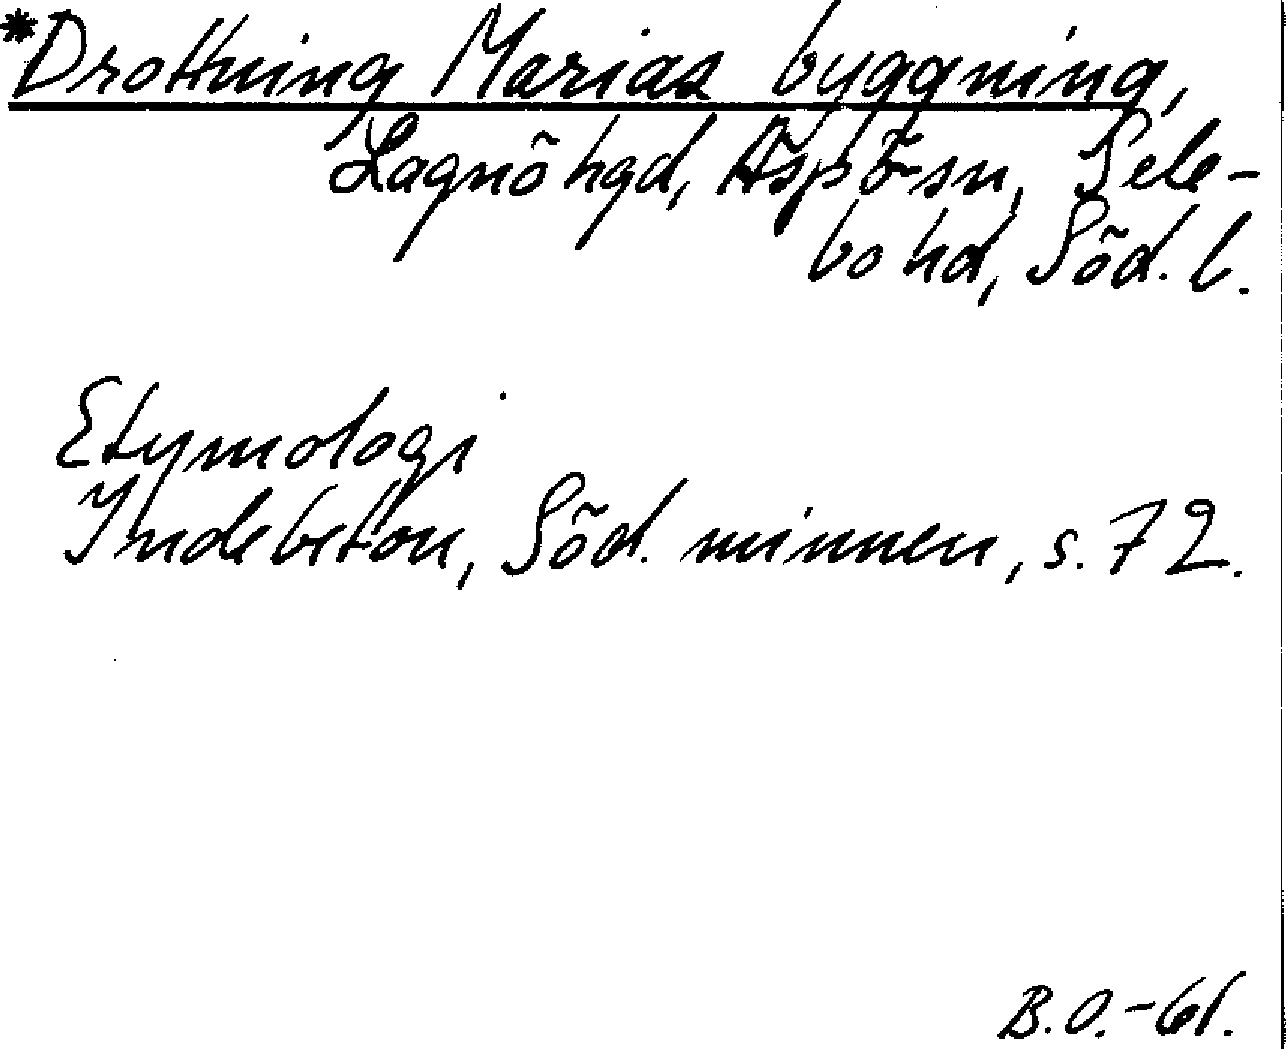 *Drottning Marias byggning,
Lagnö hgd, Aspö sn, Sele-
bo hd, Söd. l.
Etymologi
Indebetou, Söd. minnen, s. 72.
B.O.-61.